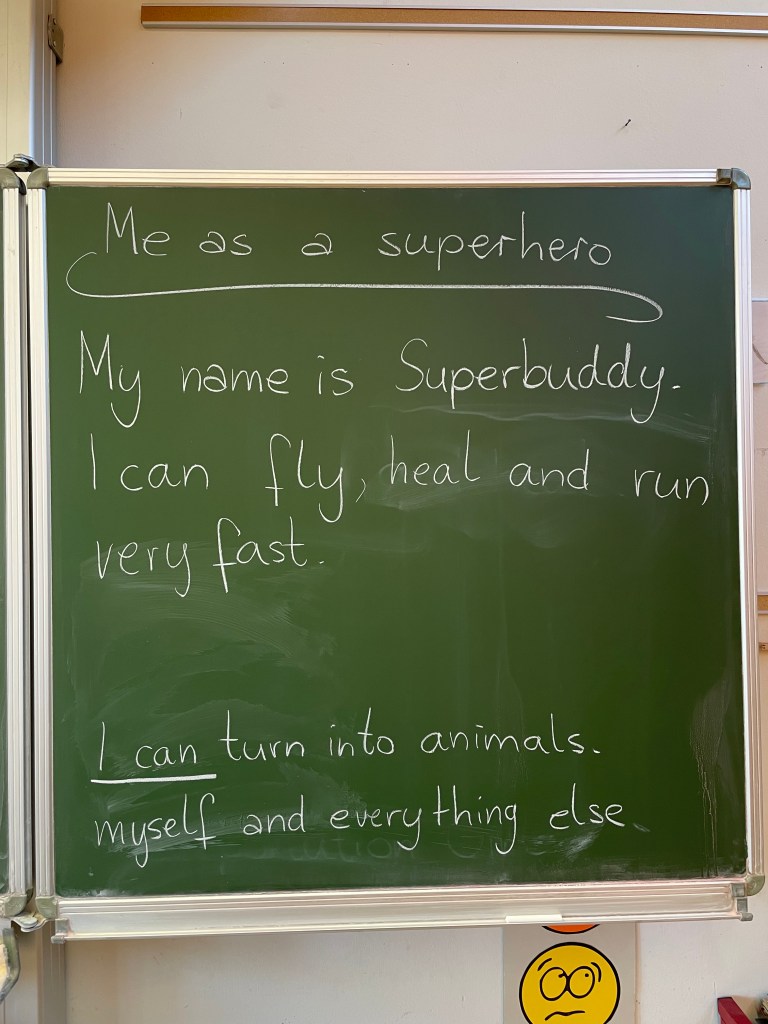 Me as a superhero
My name is Superbuddy.
I can fly, heal and run
very fast.
I can turn into animals.
myself and everything else.